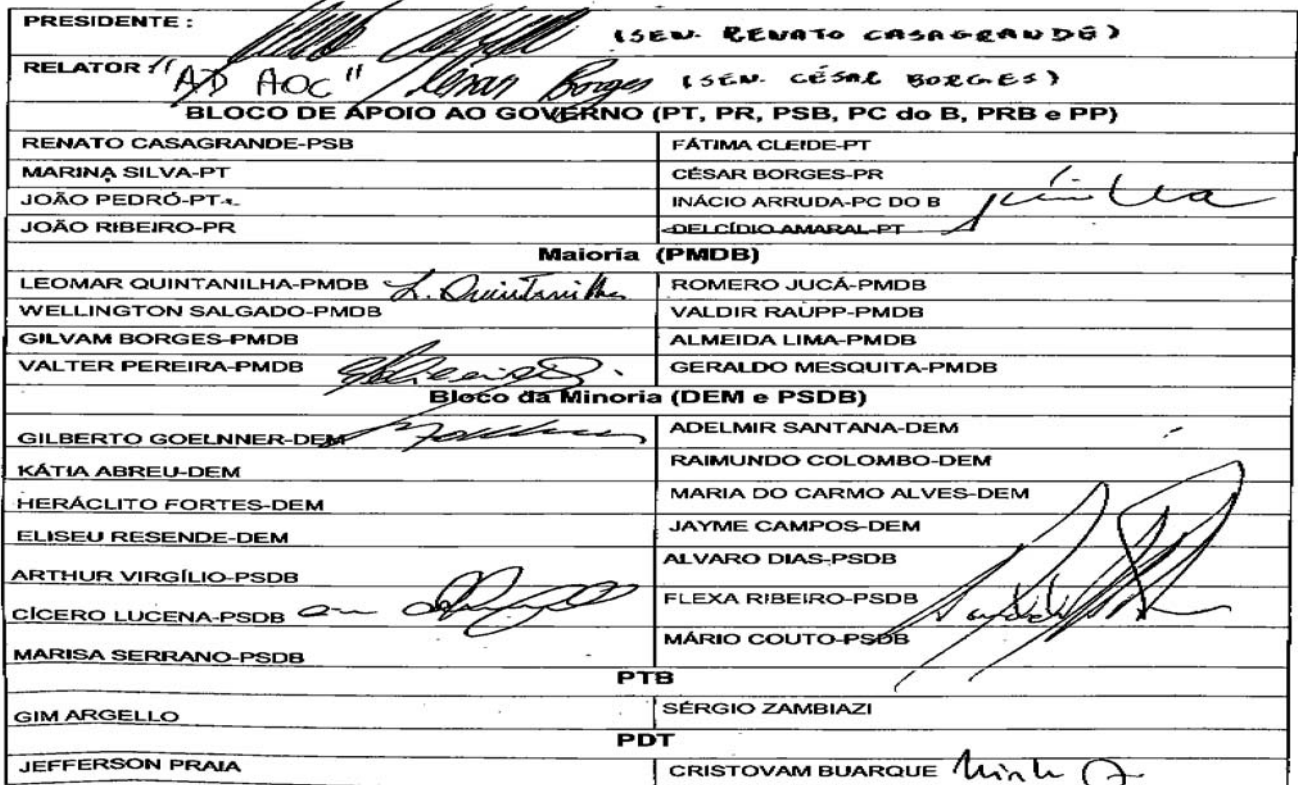 PRESIDENTE : (SEN. RENATO CASAGRANDE)
RELATOR : "AD HOC" César Borges (SEN. CÉSAR BORGES)
BLOCO DE APOIO AO GOVERNO (PT, PR, PSB, PC do B, PRB e PP)
RENATO CASAGRANDE-PSB FÁTIMA CLEIDE-PT
MARINA SILVA-PT CÉSAR BORGES-PR
JOÃO PEDRO-PT INÁCIO ARRUDA-PC DO B
JOÃO RIBEIRO-PR DELCÍDIO AMARAL-PT
Maioria (PMDB)
LEOMAR QUINTANILHA-PMDB L. Quintanilha ROMERO JUCÁ-PMDB
WELLINGTON SALGADO-PMDB VALDIR RAUPP-PMDB
GILVAM BORGES-PMDB ALMEIDA LIMA-PMDB
VALTER PEREIRA-PMDB GERALDO MESQUITA-PMDB
Bloco da Minoria (DEM e PSDB)
GILBERTO GOELNNER-DEM ADELMIR SANTANA-DEM
KÁTIA ABREU-DEM RAIMUNDO COLOMBO-DEM
HERÁCLITO FORTES-DEM MARIA DO CARMO ALVES-DEM
ELISEU RESENDE-DEM JAYME CAMPOS-DEM
ARTHUR VIRGÍLIO-PSDB ALVARO DIAS-PSDB
CÍCERO LUCENA-PSDB FLEXA RIBEIRO-PSDB
MARISA SERRANO-PSDB MÁRIO COUTO-PSDB
PTB
GIM ARGELLO SÉRGIO ZAMBIAZI
PDT
JEFFERSON PRAIA CRISTOVAM BUARQUE